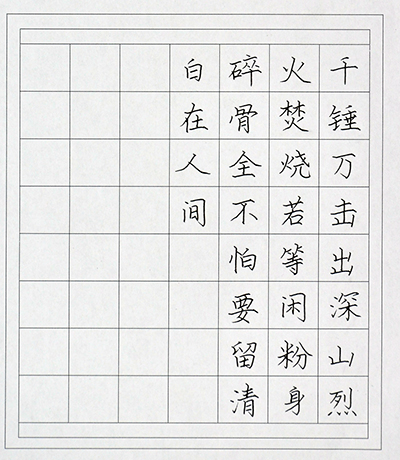 千锤万击出深山烈
火焚烧若等闲粉身
碎骨全不怕要留清
白在人间